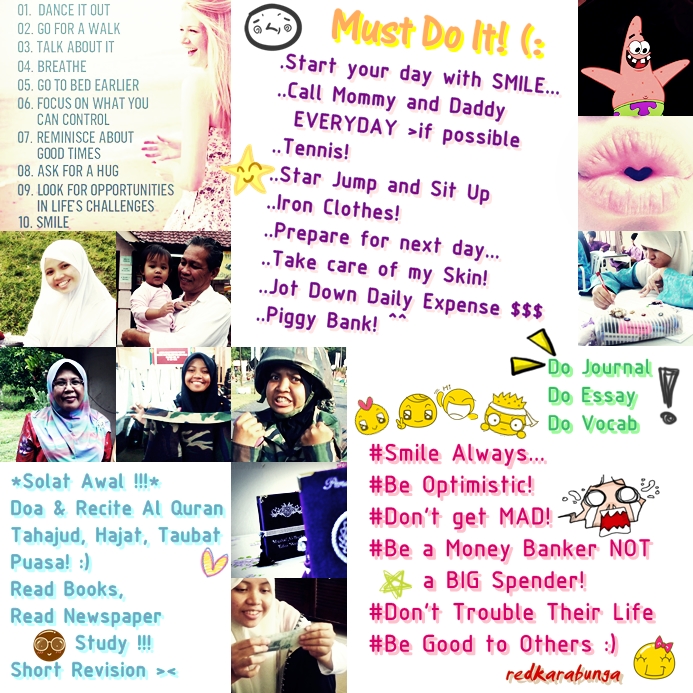 01. DANCE IT OUT
02. GO FOR A WALK
03. TALK ABOUT IT
04. BREATHE
05. GO TO BED EARLIER
06. FOCUS ON WHAT YOU
CAN CONTROL
07. REMINISCE ABOUT
GOOD TIMES
08. ASK FOR A HUG
09. LOOK FOR OPPORTUNITIES
IN LIFE'S CHALLENGES
10. SMILE
Must Do It! (:
.Start your day with SMILE...
..Call Mommy and Daddy
EVERYDAY >if possible
..Tennis!
..Star Jump and Sit Up
..Iron Clothes!
..Prepare for next day...
..Take care of my Skin!
..Jot Down Daily Expense $$$
..Piggy Bank! ^^
Do Journal
Do Essay
Do Vocab
!
*Solat Awal !!!*
Doa & Recite Al Quran
Tahajud, Hajat, Taubat
Puasa! :)
Read Books,
Read Newspaper
Study !!!
Short Revision ><
#Smile Always...
#Be Optimistic!
#Don't get MAD!
#Be a Money Banker NOT
a BIG Spender!
#Don't Trouble Their Life
#Be Good to Others :)
redkarabunga